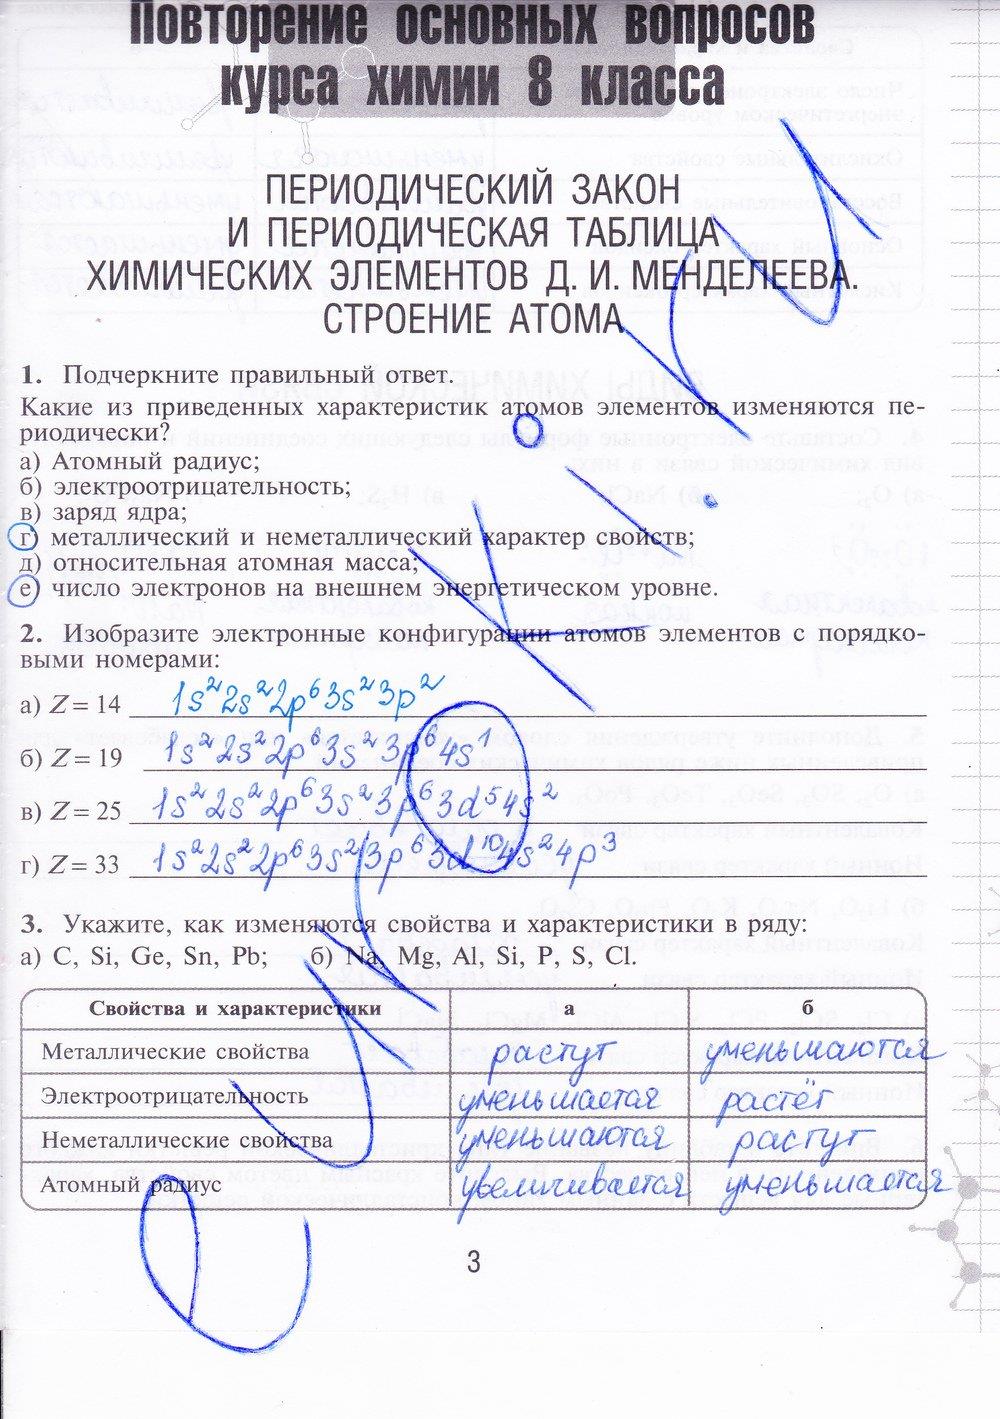 Повторение основных вопросов
курса химии 8 класса
ПЕРИОДИЧЕСКИЙ ЗАКОН
И ПЕРИОДИЧЕСКАЯ ТАБЛИЦА
ХИМИЧЕСКИХ ЭЛЕМЕНТОВ Д. И. МЕНДЕЛЕЕВА.
СТРОЕНИЕ АТОМА
1. Подчеркните правильный ответ.
Какие из приведенных характеристик атомов элементов изменяются пе-
риодически?
а) Атомный радиус;
б) электроотрицательность;
в) заряд ядра;
г) металлический и неметаллический характер свойств;
д) относительная атомная масса;
е) число электронов на внешнем энергетическом уровне.
2. Изобразите электронные конфигурации атомов элементов с порядко-
выми номерами:
а) Z = 14 1s²2s²2p⁶3s²3p²
б) Z = 19 1s²2s²2p⁶3s²3p⁶4s¹
в) Z = 25 1s²2s²2p⁶3s²3p⁶3d⁵4s²
г) Z = 33 1s²2s²2p⁶3s²3p⁶3d¹⁰4s²4p³
3. Укажите, как изменяются свойства и характеристики в ряду:
а) C, Si, Ge, Sn, Pb; б) Na, Mg, Al, Si, P, S, Cl.
Свойства и характеристики а б
Металлические свойства растут уменьшаются
Электроотрицательность уменьшается растёт
Неметаллические свойства уменьшаются растут
Атомный радиус увеличивается уменьшается
3